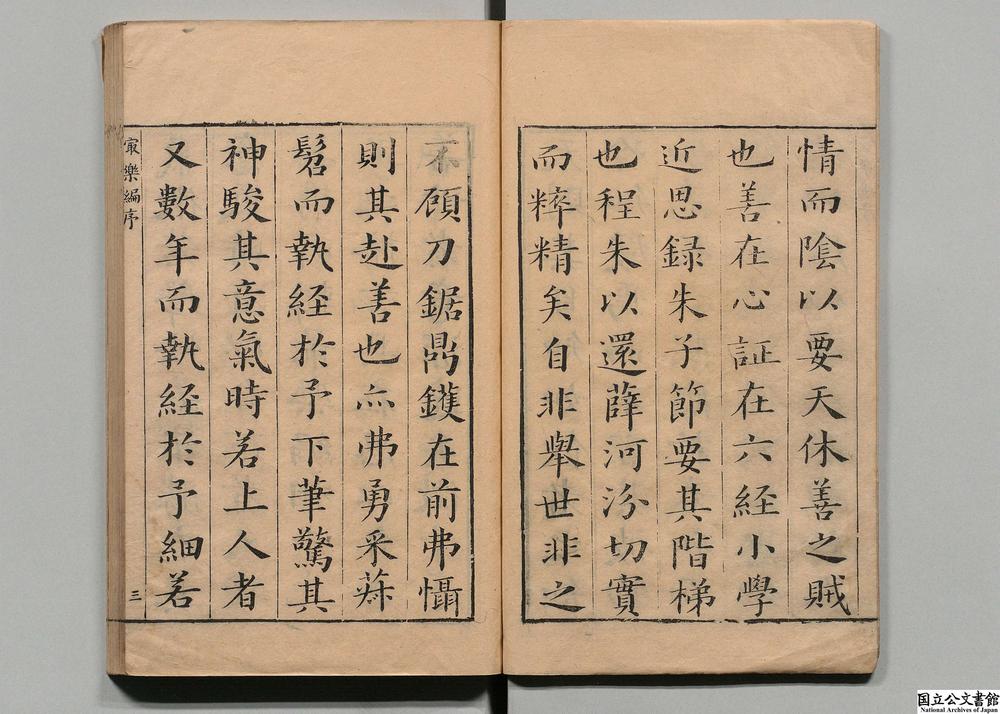 情而陰以要天休善之賊
也善在心証在六経小學
近思録朱子節要其階梯
也程朱以還薛河汾切實
而粹精矣自非舉世非之
不顧刀鋸鼎鑊在前弗懾
則其赴善也亦弗勇釆蘇
髫而執経於予下筆驚其
神駿其意氣時若上人者
又數年而執経於予細若
㝡樂編序
三
国立公文書館
National Archives of Japan